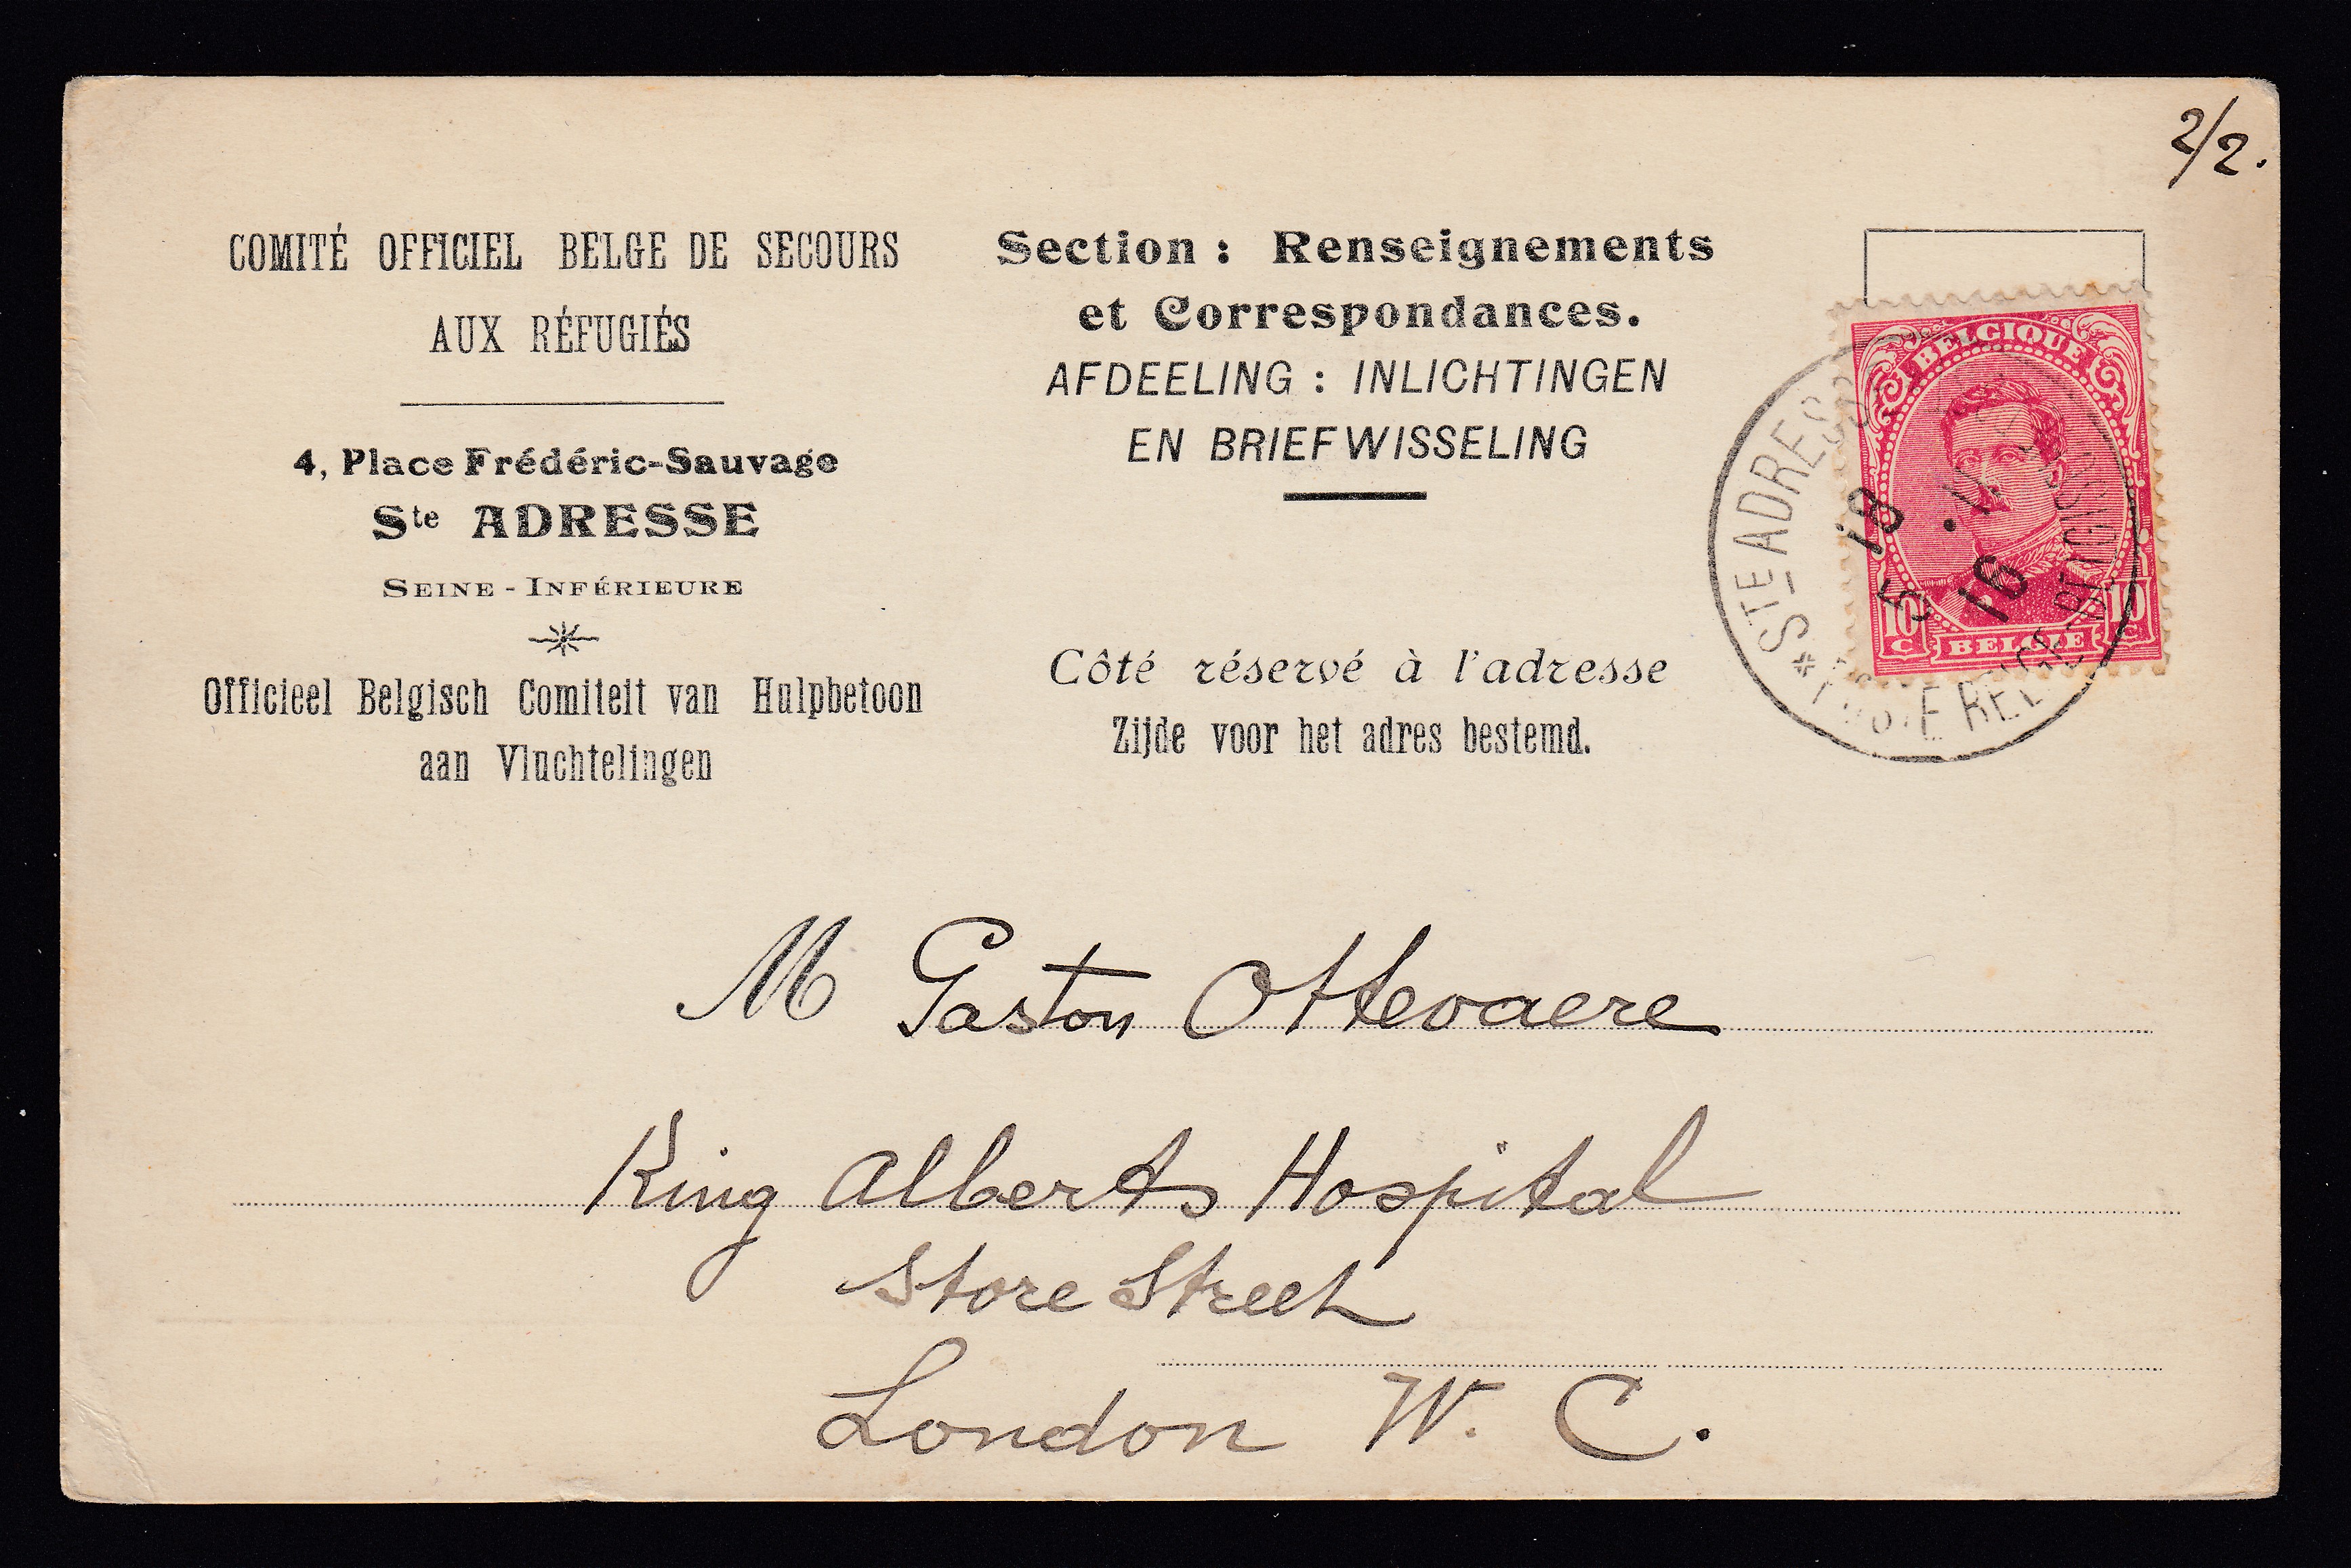 2/2.
COMITÉ OFFICIEL BELGE DE SECOURS
AUX RÉFUGIÉS
4, Place Frédéric-Sauvage
Ste ADRESSE
SEINE-INFÉRIEURE
Officieel Belgisch Comiteit van Hulpbetoon
aan Vluchtelingen
Section : Renseignements
et Correspondances.
AFDEELING : INLICHTINGEN
EN BRIEFWISSELING
Côté réservé à l'adresse
Zijde voor het adres bestemd.
BELGIQUE
10 C 10 C
BELGIE
STE ADRESSE
18
16
M Gaston Ottevaere
King Alberts Hospital
Store Street
London W. C.